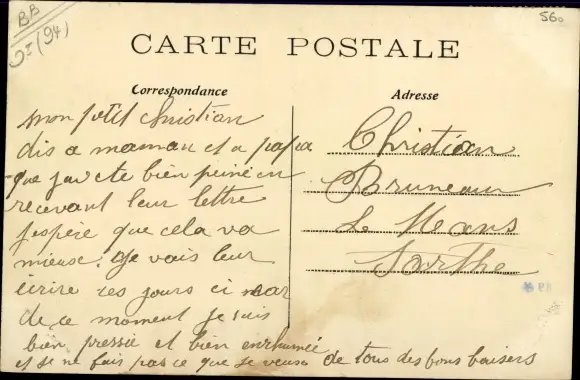 BB
(94)
560
CARTE POSTALE
Correspondance
Adresse
mon petit christian
dis a maman et a papa
que javete bien peinée en
recevant leur lettre
jespere que cela va
mieux. Je vais leur
écrire ces jours ci car
de ce moment je suis
bien pressée et bien enrhumée
et je ne fais pas ce que je veux
de tous des bons baisers
Christian
Bruneau
Le Mans
Sarthe